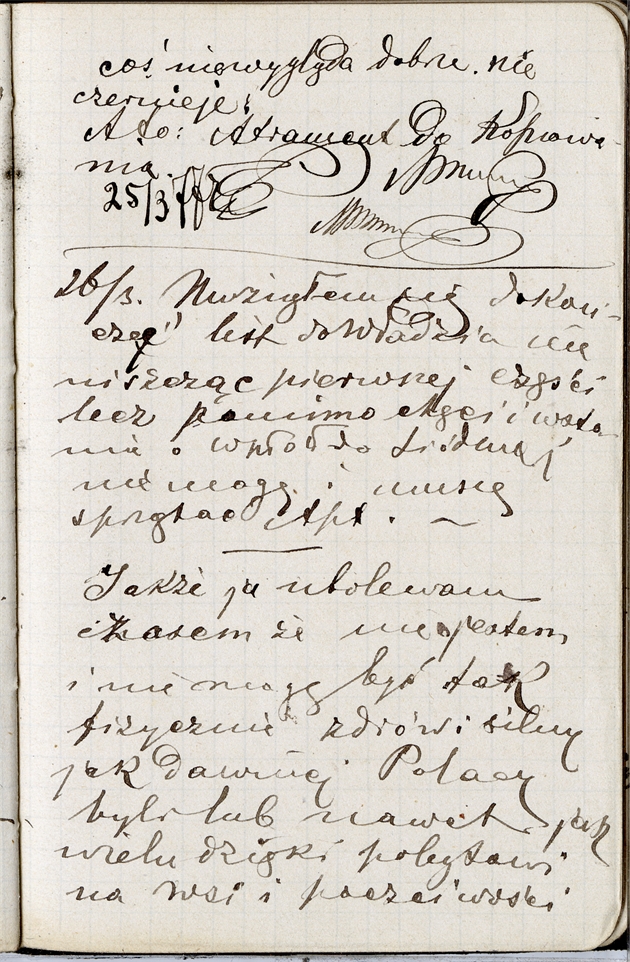 coś niewygląda dobrze. nie
czernieje:
A to: Atrament Do Kopiowa-
nia.
25/3
26/3. Nuziąłem się dokoń-
czyć list do Władzia nie
niszcząc pierwszej części
lecz pomimo chęci i wsta
nia o wpół do siódmej
nie mogę i muszę
sprzątać Apt. —
Jakże ja ubolewam
czasem że nie jestem
i nie mogę być tak
fizycznie zdrów i silny
jak dawniej Polacy
byli lub nawet jak
wielu dzięki pobytowi
na wsi i poczciwości